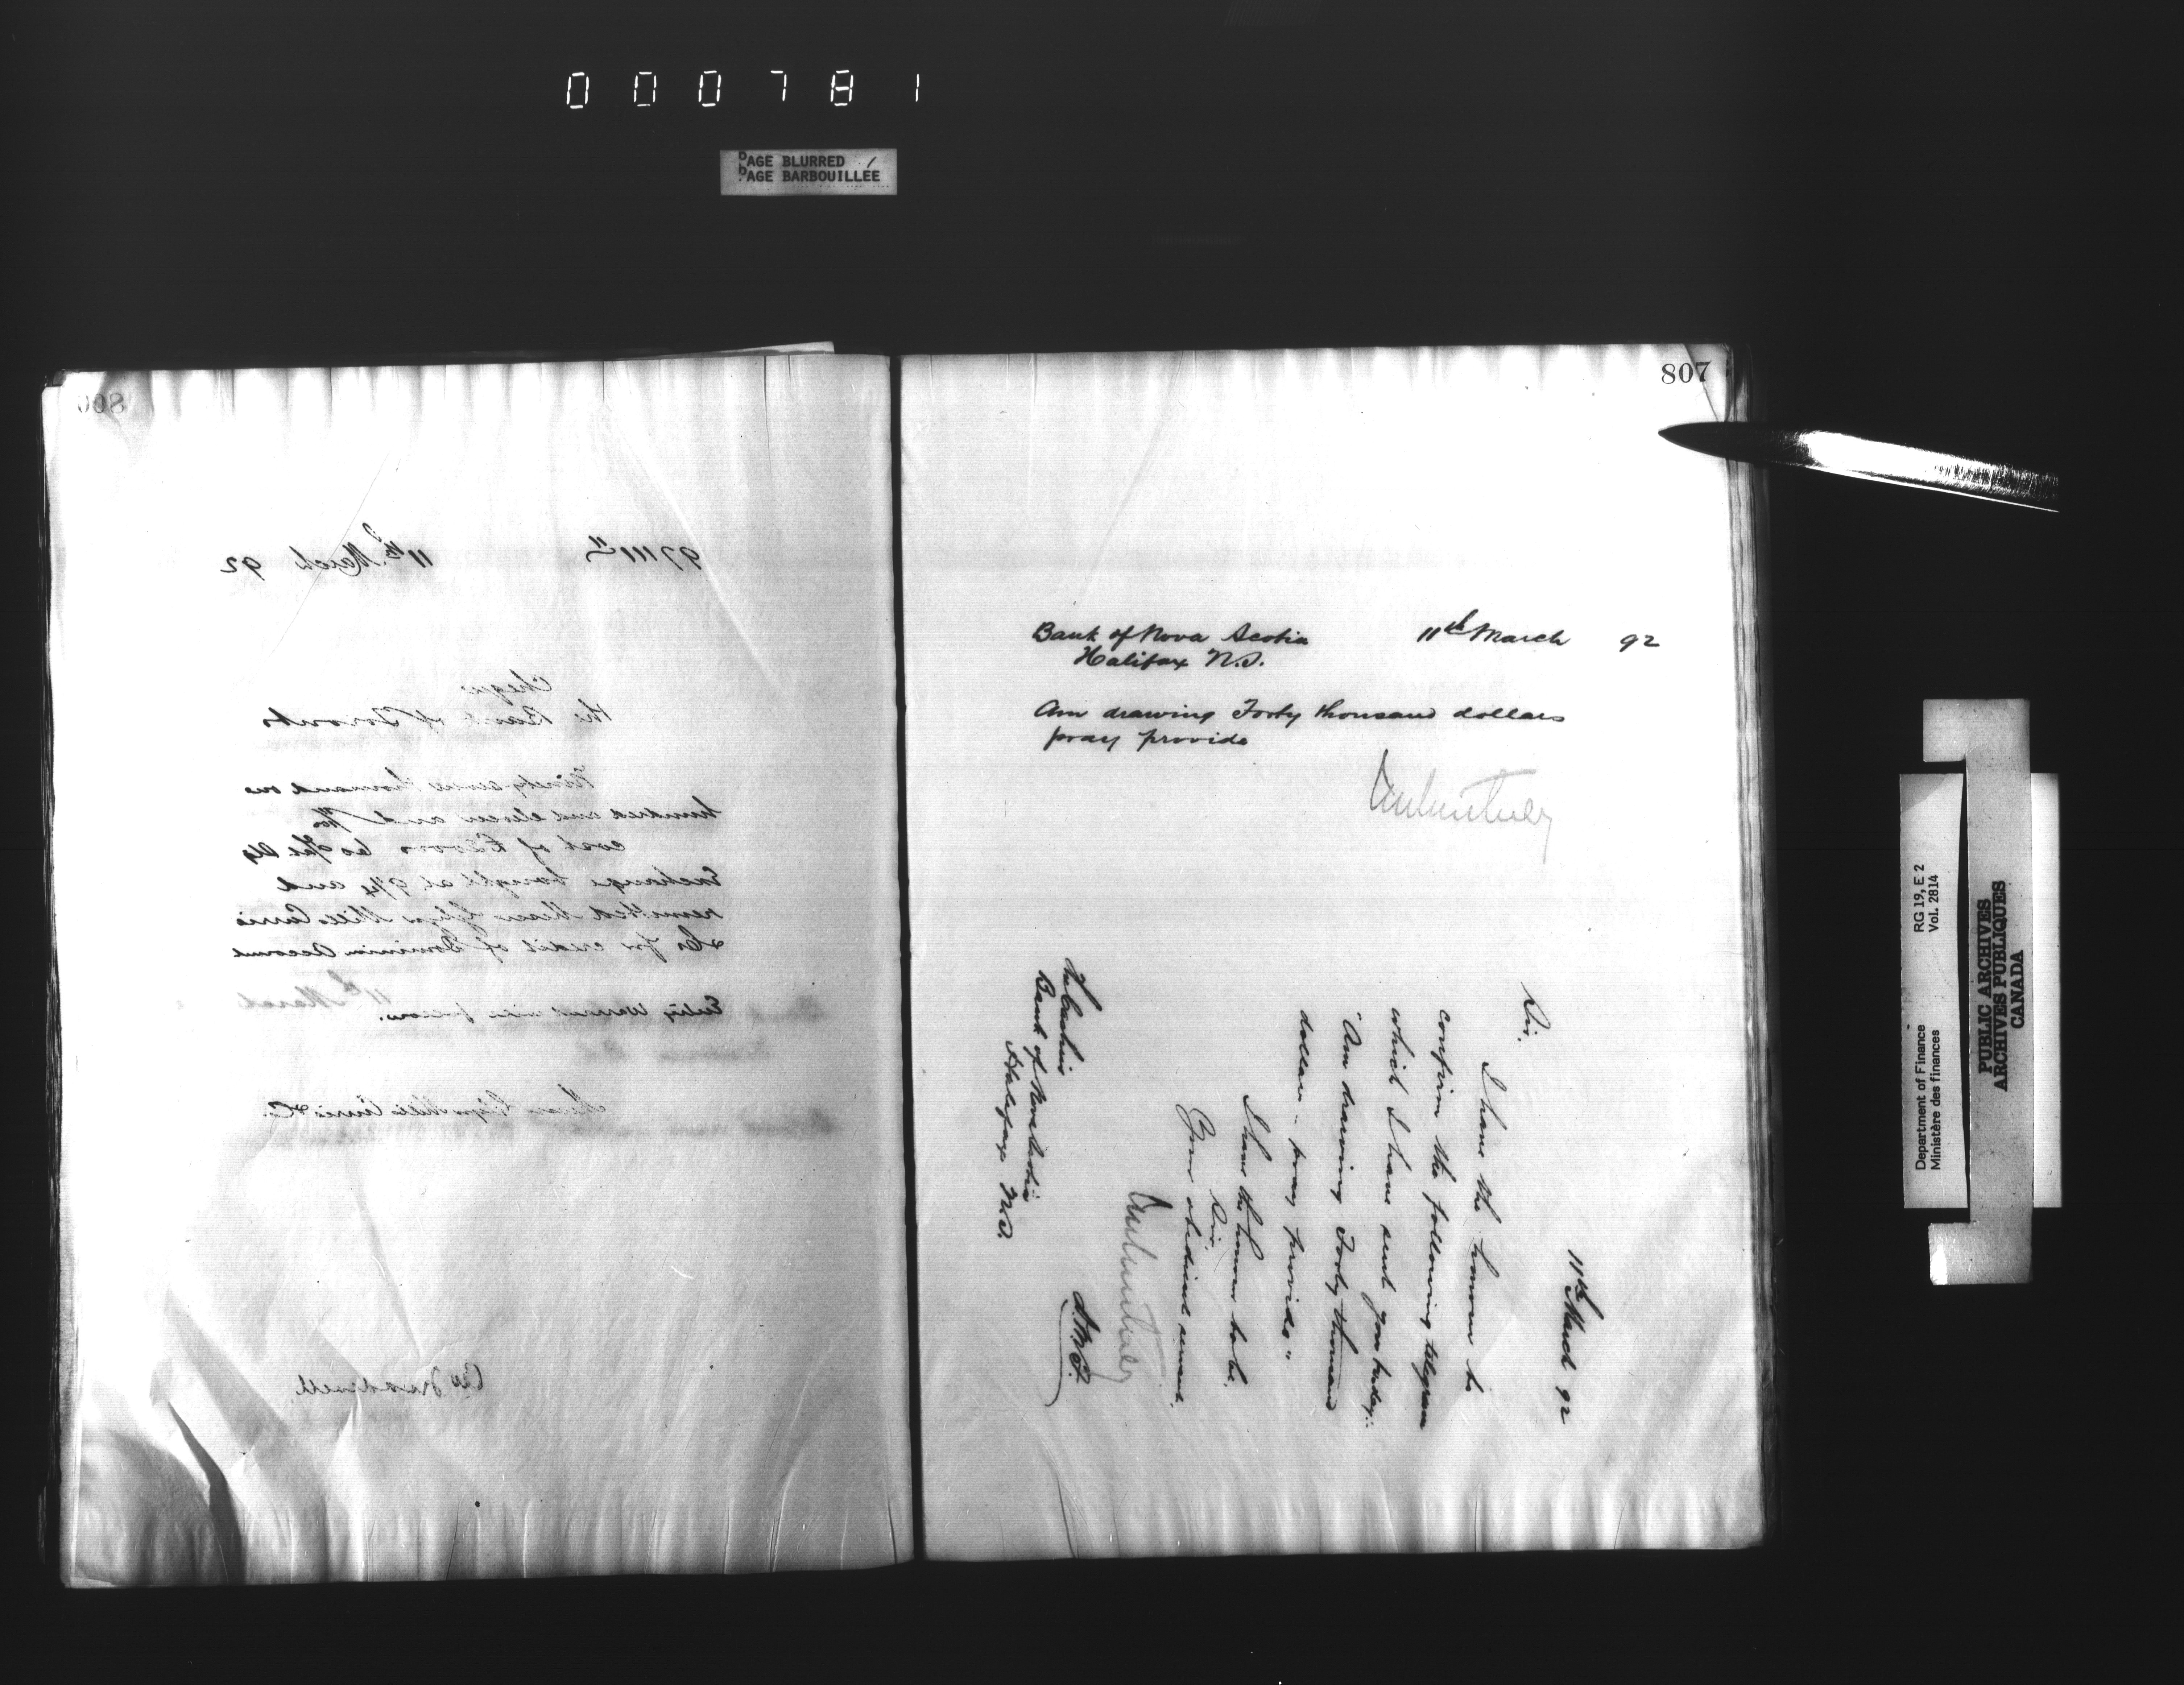 000781
PAGE BLURRED
PAGE BARBOUILLÉE
806
97111 11
11th March 92
Cheque
the Bank of Toronto
Ninety seven thousand one
hundred and eleven and
cost of £20000 60
Exchange bought at 9 1/4 and
remitted Messrs Glyn Mills Currie
& Co for credit of Dominion Account
Entry warrant will follow.
11th March
Messrs Glyn Mills Currie & Co.
807
Bank of Nova Scotia 11th March 92
Halifax N.S.
Am drawing Forty thousand dollars
pray provide
11th March 92
Sir,
I have the honour to
confirm the following telegram
which I have sent you today:
"Am drawing Forty thousand
dollars - pray provide"
I have the honour to be,
Sir,
Your obedient servant
D.M.F.
The Cashier
Bank of Nova Scotia
Halifax N.S.
Department of Finance
Ministère des finances
RG 19, E 2
Vol. 2814
PUBLIC ARCHIVES
ARCHIVES PUBLIQUES
CANADA